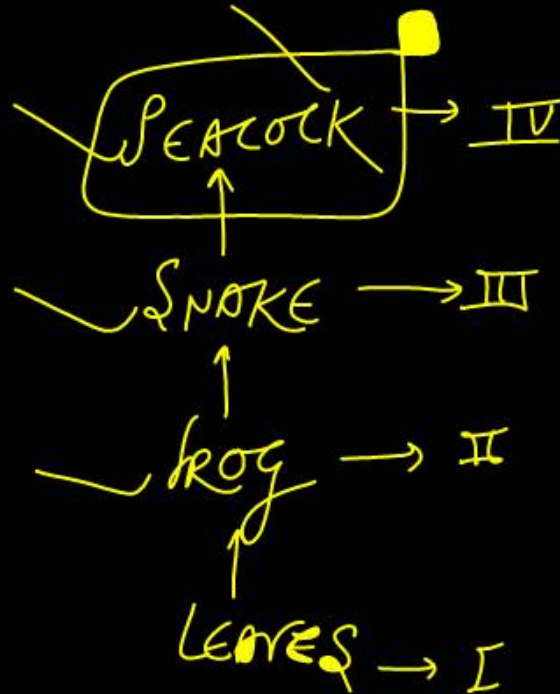 PEACOCK → IV
SNAKE → III
FROG → II
LEAVES → I